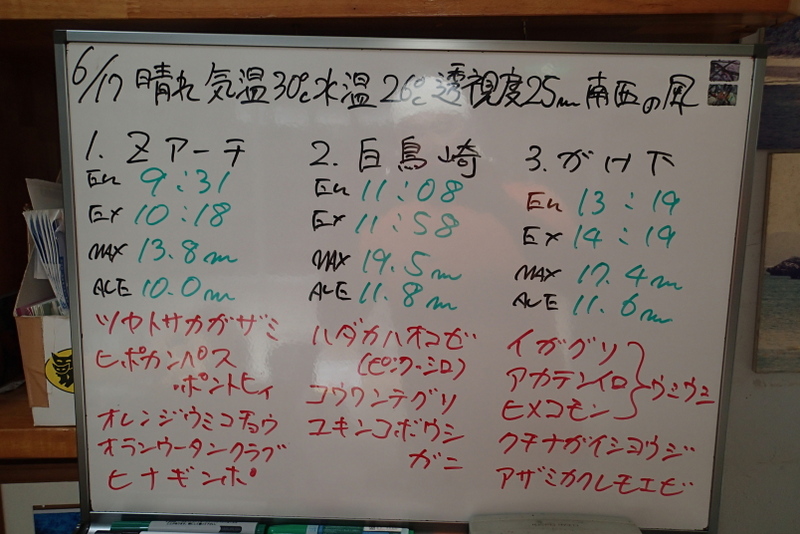 6/17 晴れ 気温30℃ 水温26℃ 透視度25m 南西の風
1. Zアーチ
En 9:31
EX 10:18
MAX 13.8m
AVE 10.0m
ツヤトサカガザミ
ヒポカンパス
・ポントヒィ
オレンジウミコチョウ
オランウータンクラブ
ヒナギンポ
2. 白鳥崎
En 11:08
EX 11:58
MAX 19.5m
AVE 11.8m
ハダカハオコゼ
(ピンク・シロ)
コウワンテグリ
ユキンコボウシ
ガニ
3. がけ下
En 13:19
EX 14:19
MAX 17.4m
AVE 11.6m
イガグリ
アカテンイロ
ウミウシ
ヒメコモン
クチナガイシヨウジ
アザミカクレモエビ